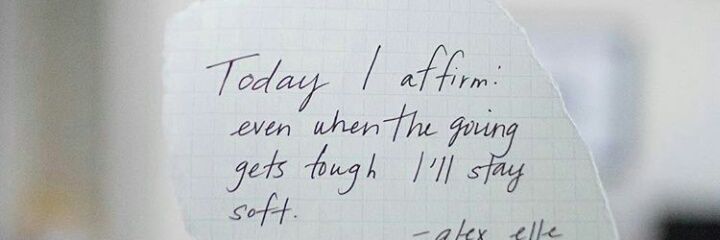 Today I affirm:
even when the going
gets tough I'll stay
soft.
-alex elle